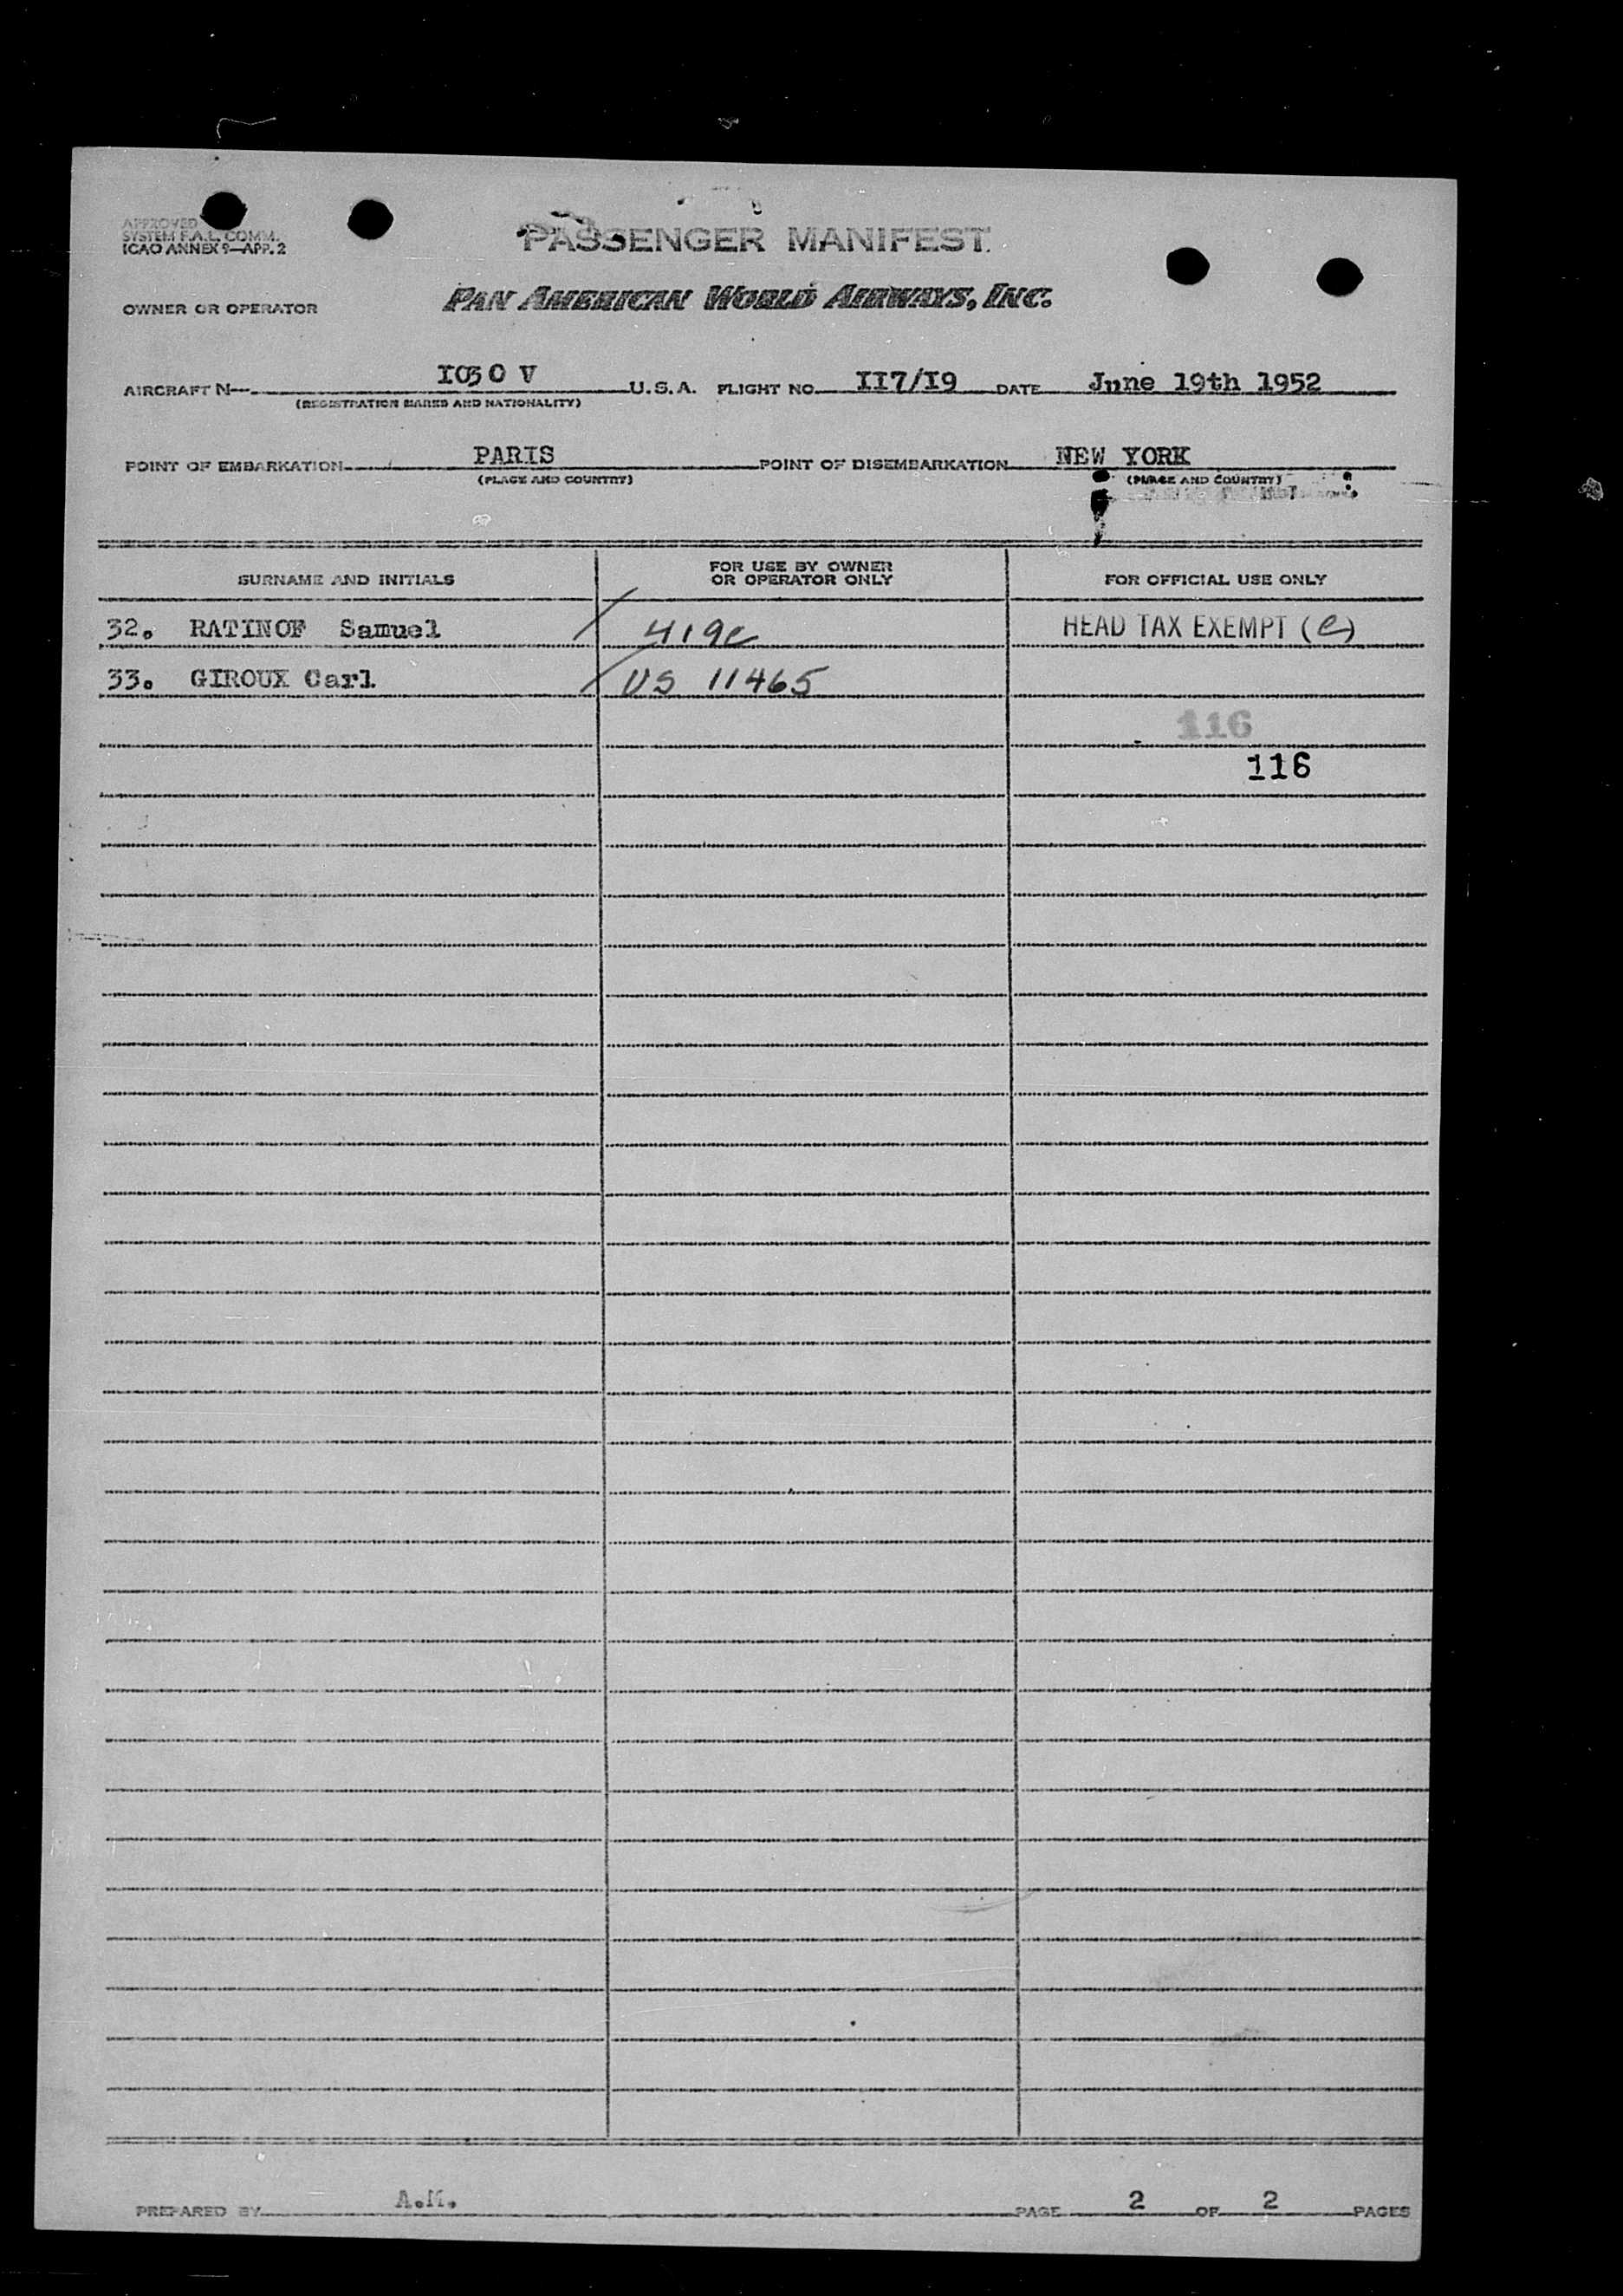 APPROVED
SYSTEM F.A.L. COMM.
ICAO ANNEX 9—APP. 2
PASSENGER MANIFEST
OWNER OR OPERATOR PAN AMERICAN WORLD AIRWAYS, INC.
AIRCRAFT N— I030 V U.S.A. FLIGHT NO. II7/I9 DATE June 19th 1952
(REGISTRATION MARKS AND NATIONALITY)
POINT OF EMBARKATION PARIS POINT OF DISEMBARKATION NEW YORK
(PLACE AND COUNTRY) (PLACE AND COUNTRY)
SURNAME AND INITIALS FOR USE BY OWNER OR OPERATOR ONLY FOR OFFICIAL USE ONLY
32. RATINOF Samuel / 419c HEAD TAX EXEMPT (e)
33. GIROUX Carl / US 11465
116
116
PREPARED BY A.M. PAGE 2 OF 2 PAGES